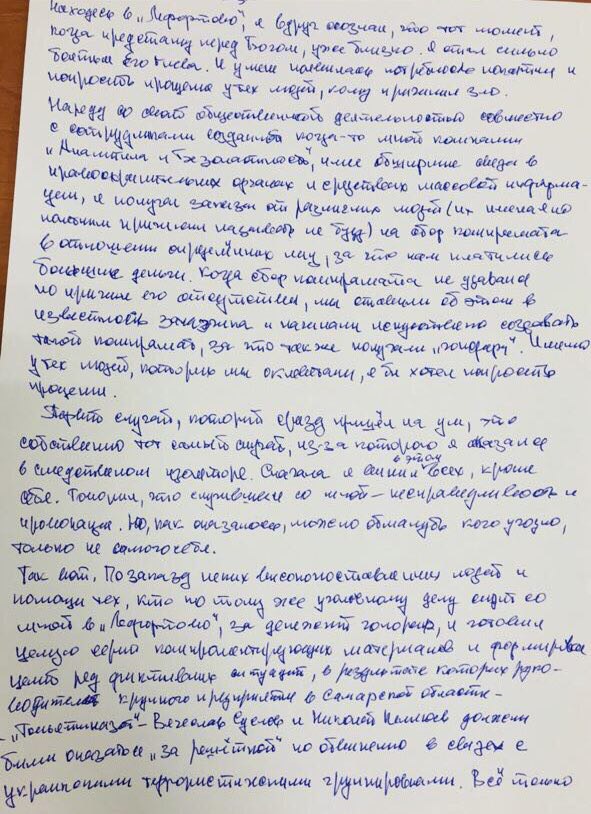 Находясь в „Лефортово", я вдруг осознал, что тот момент,
когда предстану перед Богом, уже близко. Я стал сильно
бояться Его гнева. И у меня появилась потребность покаяться и
попросить прощения у тех людей, кому я причинил зло.
Наряду со своей общественной деятельностью совместно
с сотрудниками созданной когда-то мной компании
„Аналитика и безопасность", имея обширные связи в
правоохранительных органах и средствах массовой информа-
ции, я получал заказы от различных людей (их имена я по
понятным причинам называть не буду) на сбор компромата
в отношении определённых лиц, за что нам платились
большие деньги. Когда сбор компромата не удавался
по причине его отсутствия, мы ставили об этом в
известность заказчика и начинали искусственно создавать
такой компромат, за что также получали „гонорар". Именно
у тех людей, которых мы оклеветали, я бы хотел попросить
прощения.
случай, который сразу пришёл на ум, это
собственно тот самый случай, из-за которого я оказался
в следственном изоляторе. Сначала я винил в этом всех, кроме
себя. Говорил, что случившееся со мной – несправедливость и
провокация. Но, как оказалось, можно обмануть кого угодно,
только не самого себя.
Так вот. По заказу неких высокопоставленных людей и
помощи тех, кто по тому же уголовному делу сидит со
мной в „Лефортово", за денежный гонорар, я готовил
целую серию компрометирующих материалов и формировал
целый ряд фиктивных ситуаций, в результате которых руко-
водители крупного предприятия в Самарской области –
– „Тольяттиазот" – Вячеслав Суслов и Николай должны
были оказаться „за решёткой" по обвинению в связях с
украинскими террористическими группировками. Всё только